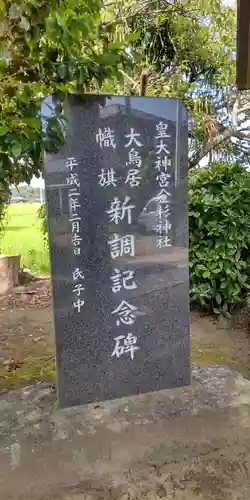 皇大神宮金彩神社
大鳥居
幟旗
新調記念碑
平成二年二月吉日 氏子中